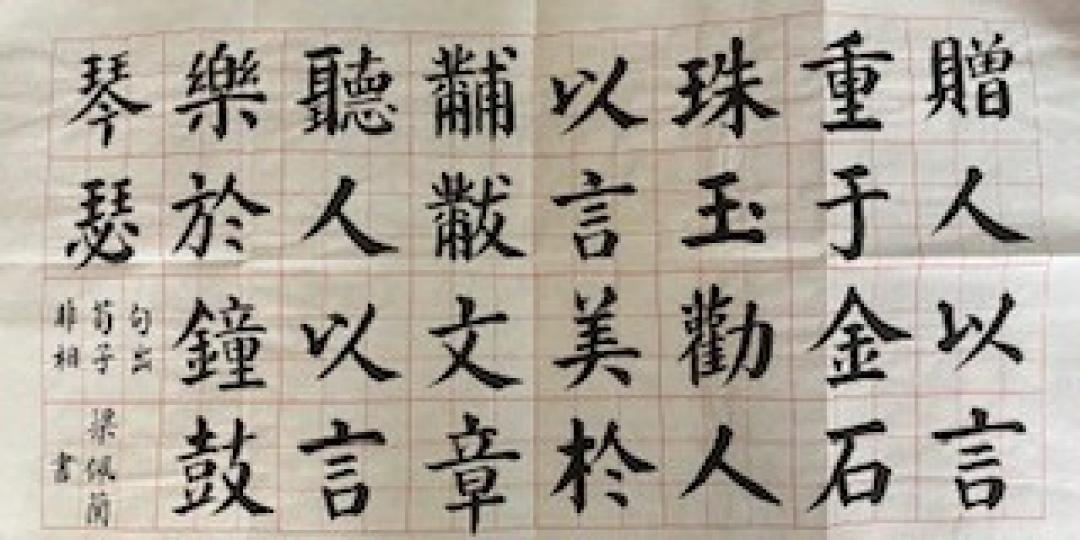 贈人以言
重于金石
珠玉勸人
以言美於
黼黻文章
聽人以言
樂於鐘鼓
琴瑟
句出
荀子
非相
梁佩蘭
書